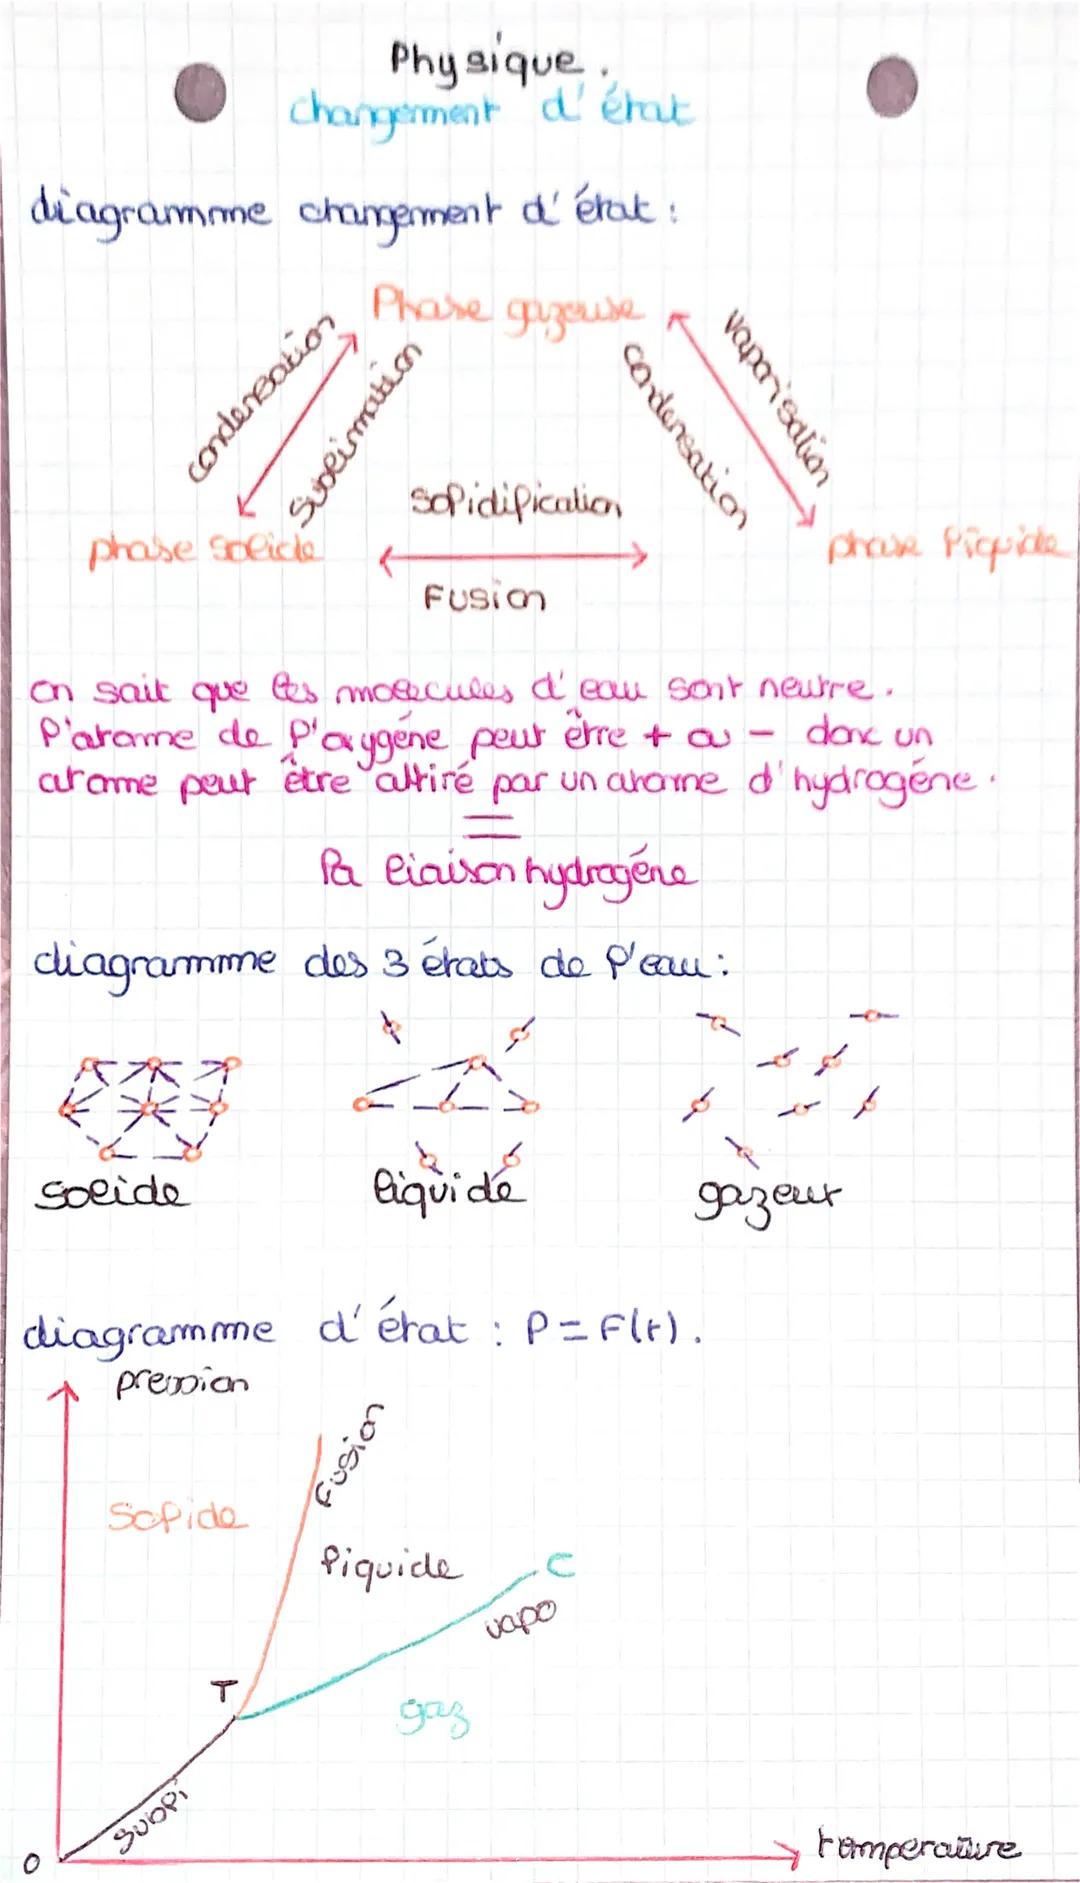 Physique.
changement d'état
diagramme changement d'état :
Phase gazeuse
condensation
sublimation
condensation
vaporisation
solidification
phase solide
phase liquide
Fusion
on sait que les molecules d'eau sont neutre.
l'atome de l'oxygéne peut être + ou - donc un
atome peut être attiré par un atome d'hydrogéne.
=
la liaison hydrogéne
diagramme des 3 états de l'eau :
solide
liquide
gazeux
diagramme d'état : P = F(t).
pression
Fusion
Solide
liquide
C
vapo
T
gaz
subli
0
temperature